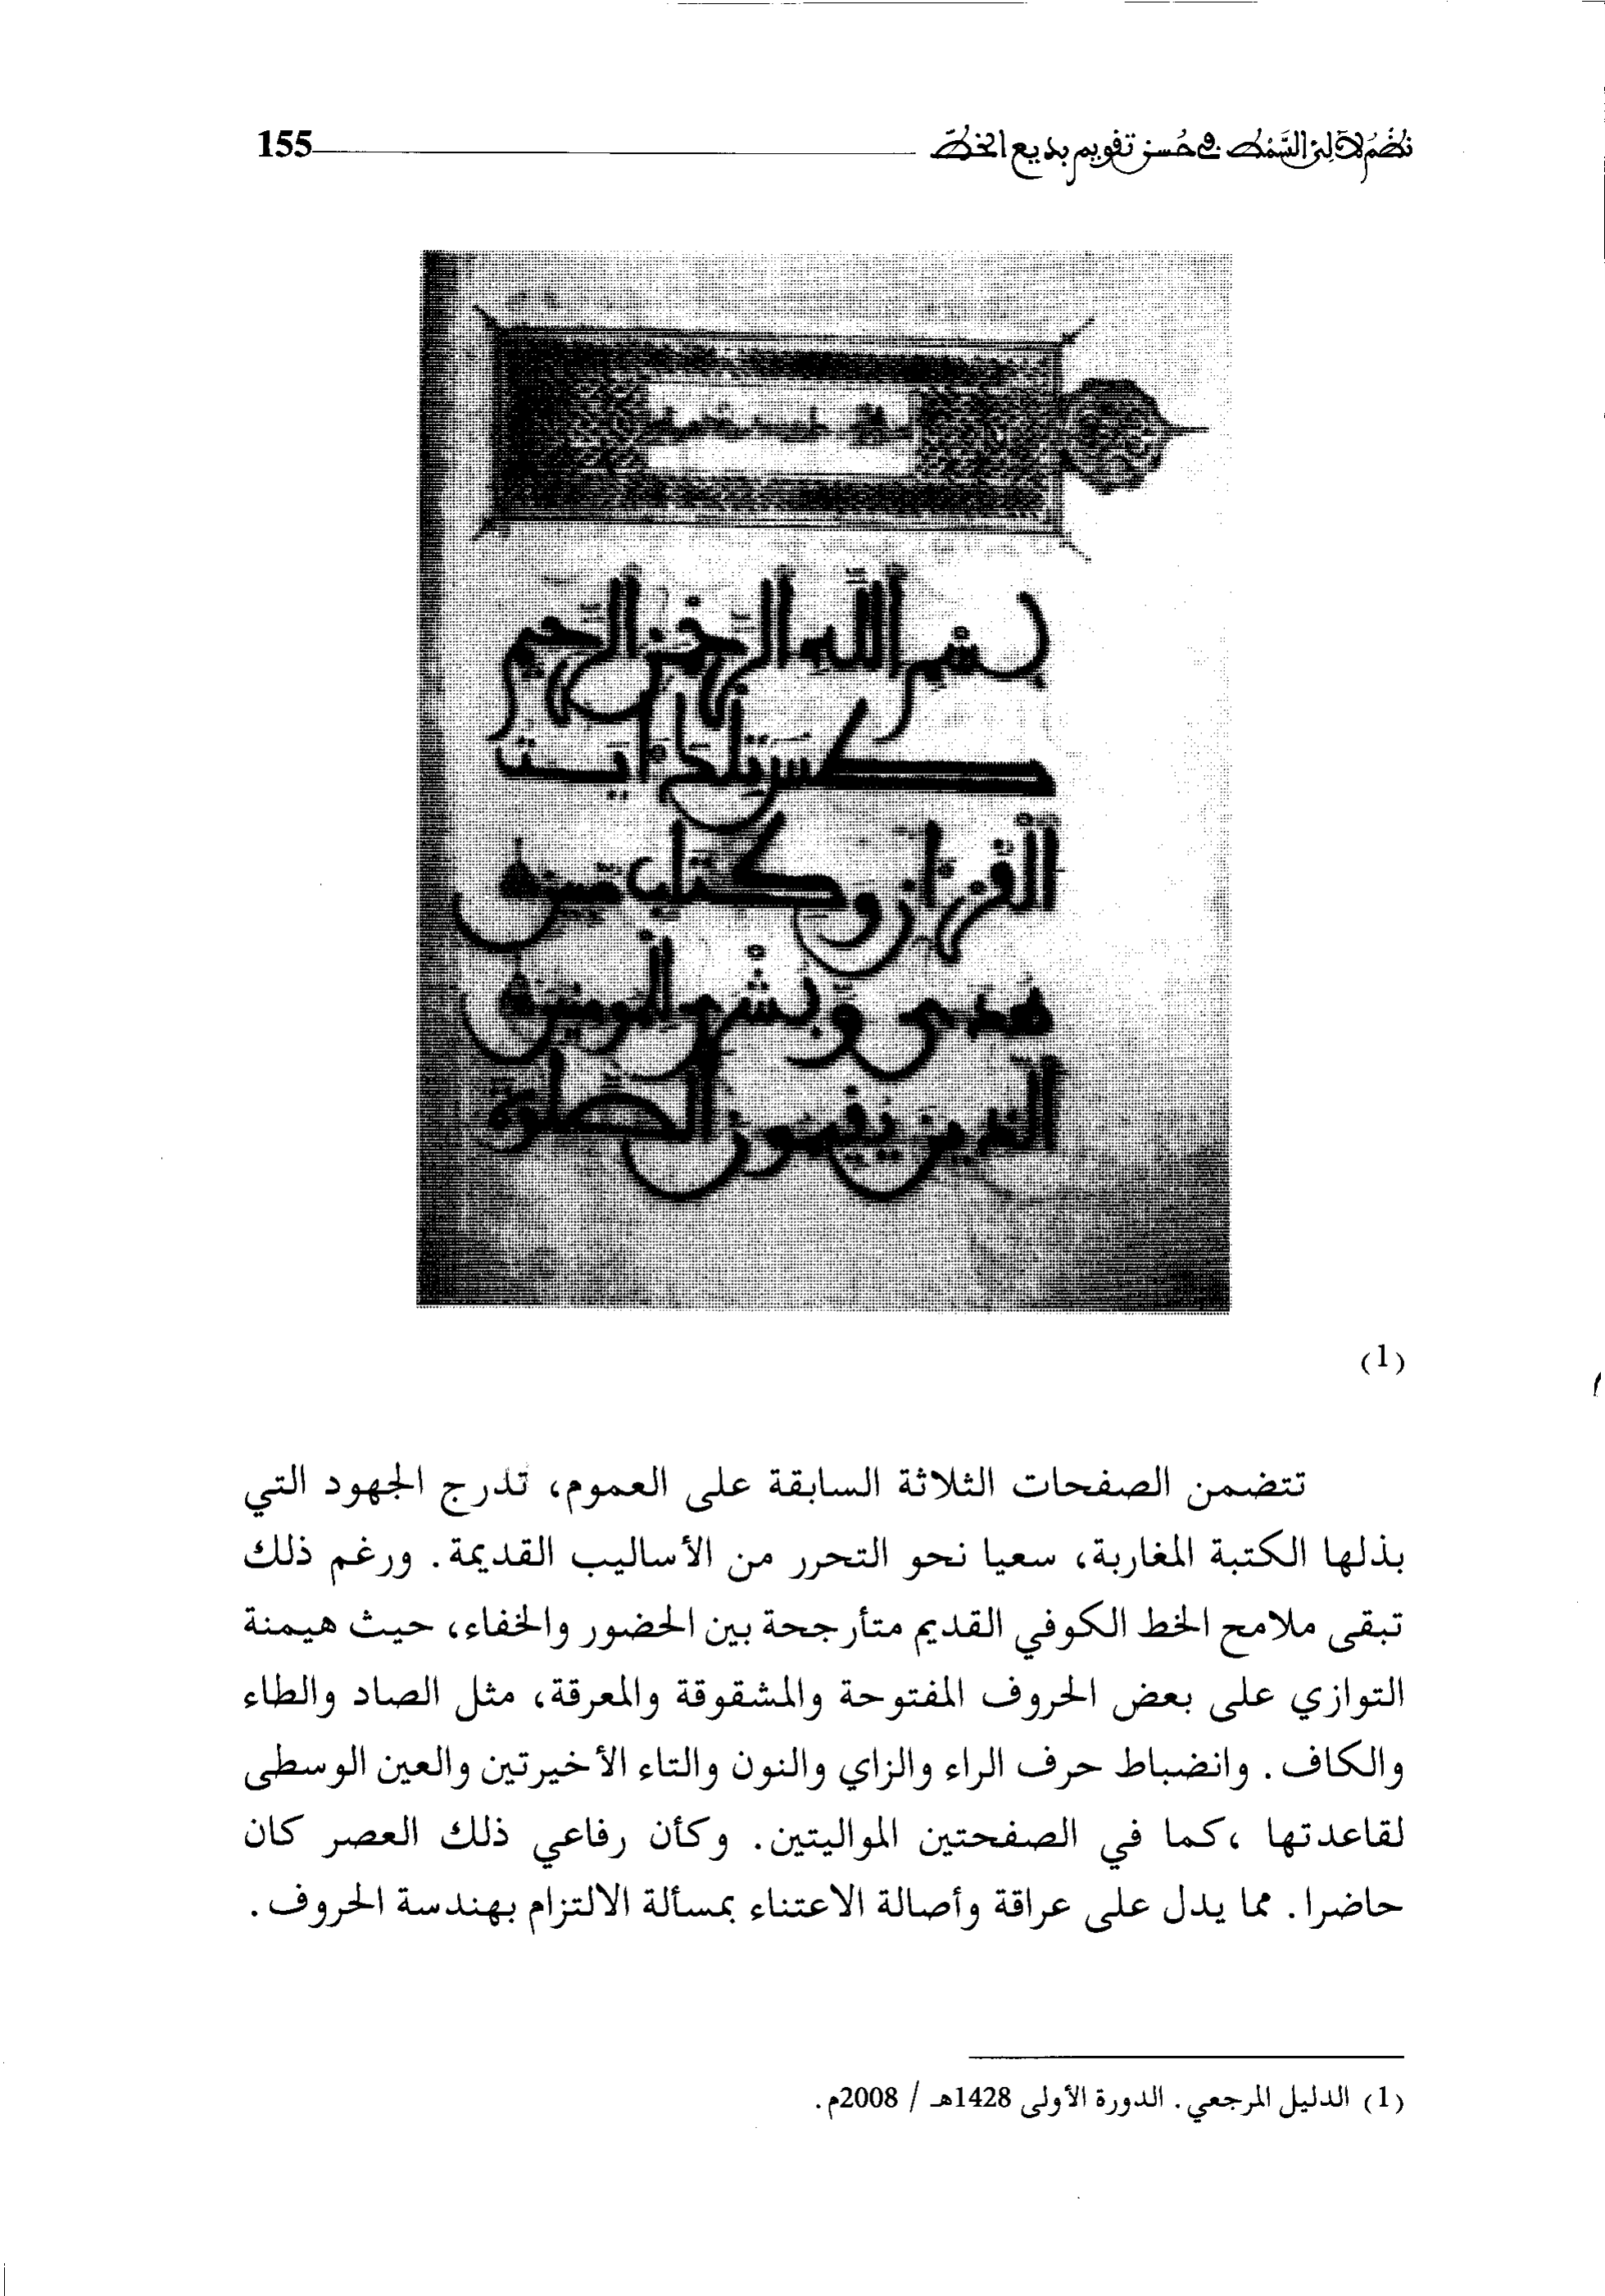 نظم لآلئ السمط في حسن تقويم بديع الخط 155
بِسْمِ اللَّهِ الرَّحْمَنِ الرَّحِيمِ
طس تلك ءايت
القرءان وكتاب مبين
هدى وبشرى للمومنين
الذين يقيمون الصلوة
(1)
تتضمن الصفحات الثلاثة السابقة على العموم، تدرج الجهود التي
بذلها الكتبة المغاربة، سعيا نحو التحرر من الأساليب القديمة. ورغم ذلك
تبقى ملامح الخط الكوفي القديم متأرجحة بين الحضور والخفاء، حيث هيمنة
التوازي على بعض الحروف المفتوحة والمشقوقة والمعرقة، مثل الصاد والطاء
والكاف. وانضباط حرف الراء والزاي والنون والتاء الأخيرتين والعين الوسطى
لقاعدتها ،كما في الصفحتين المواليتين. وكأن رفاعي ذلك العصر كان
حاضرا. مما يدل على عراقة وأصالة الاعتناء بمسألة الالتزام بهندسة الحروف.
(1) الدليل المرجعي. الدورة الأولى 1428هـ / 2008م.